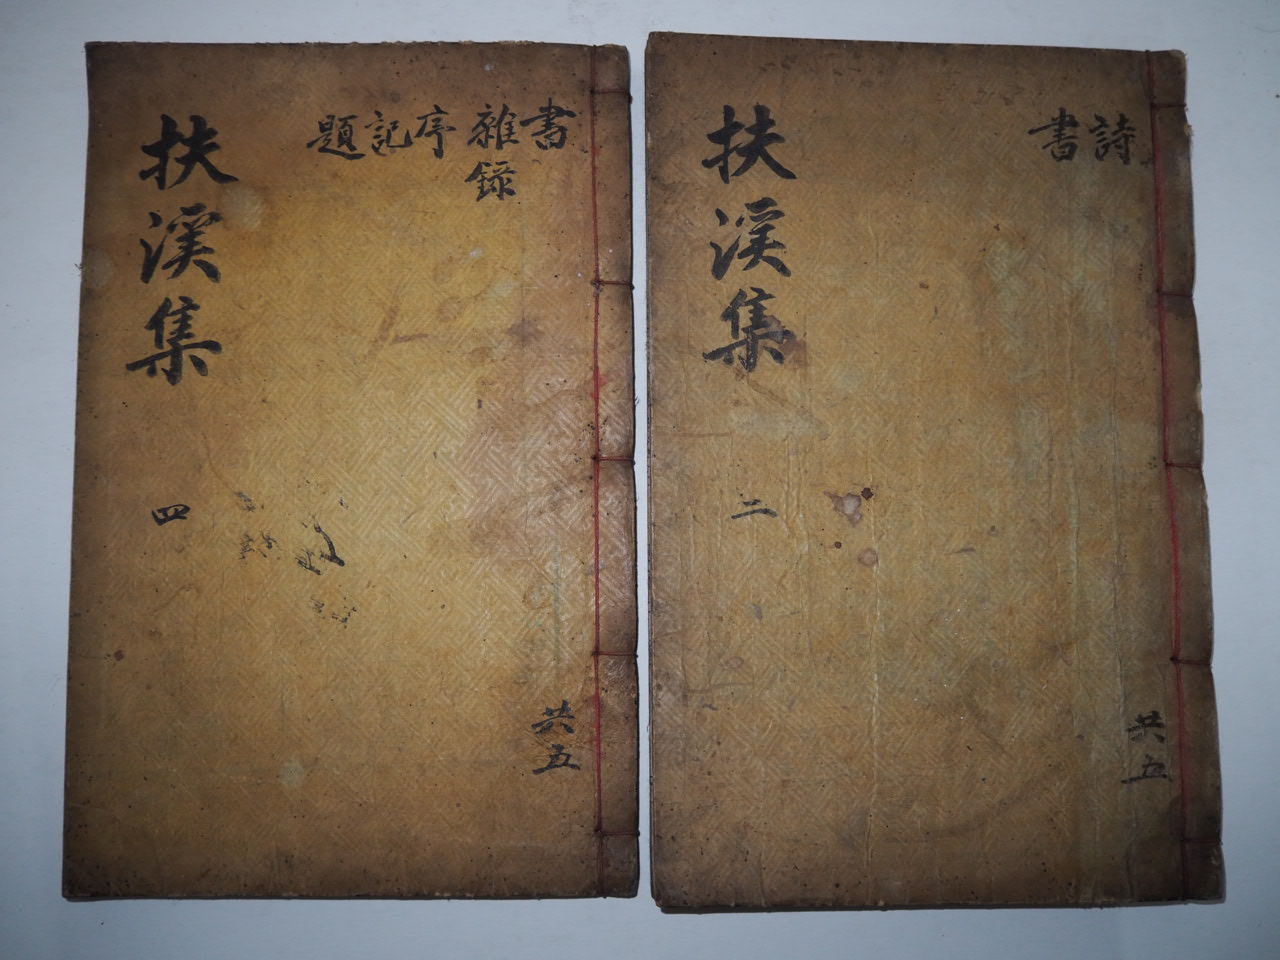 扶溪集
二
詩 書
共五
扶溪集
四
書 雜錄 序 記 題
共五